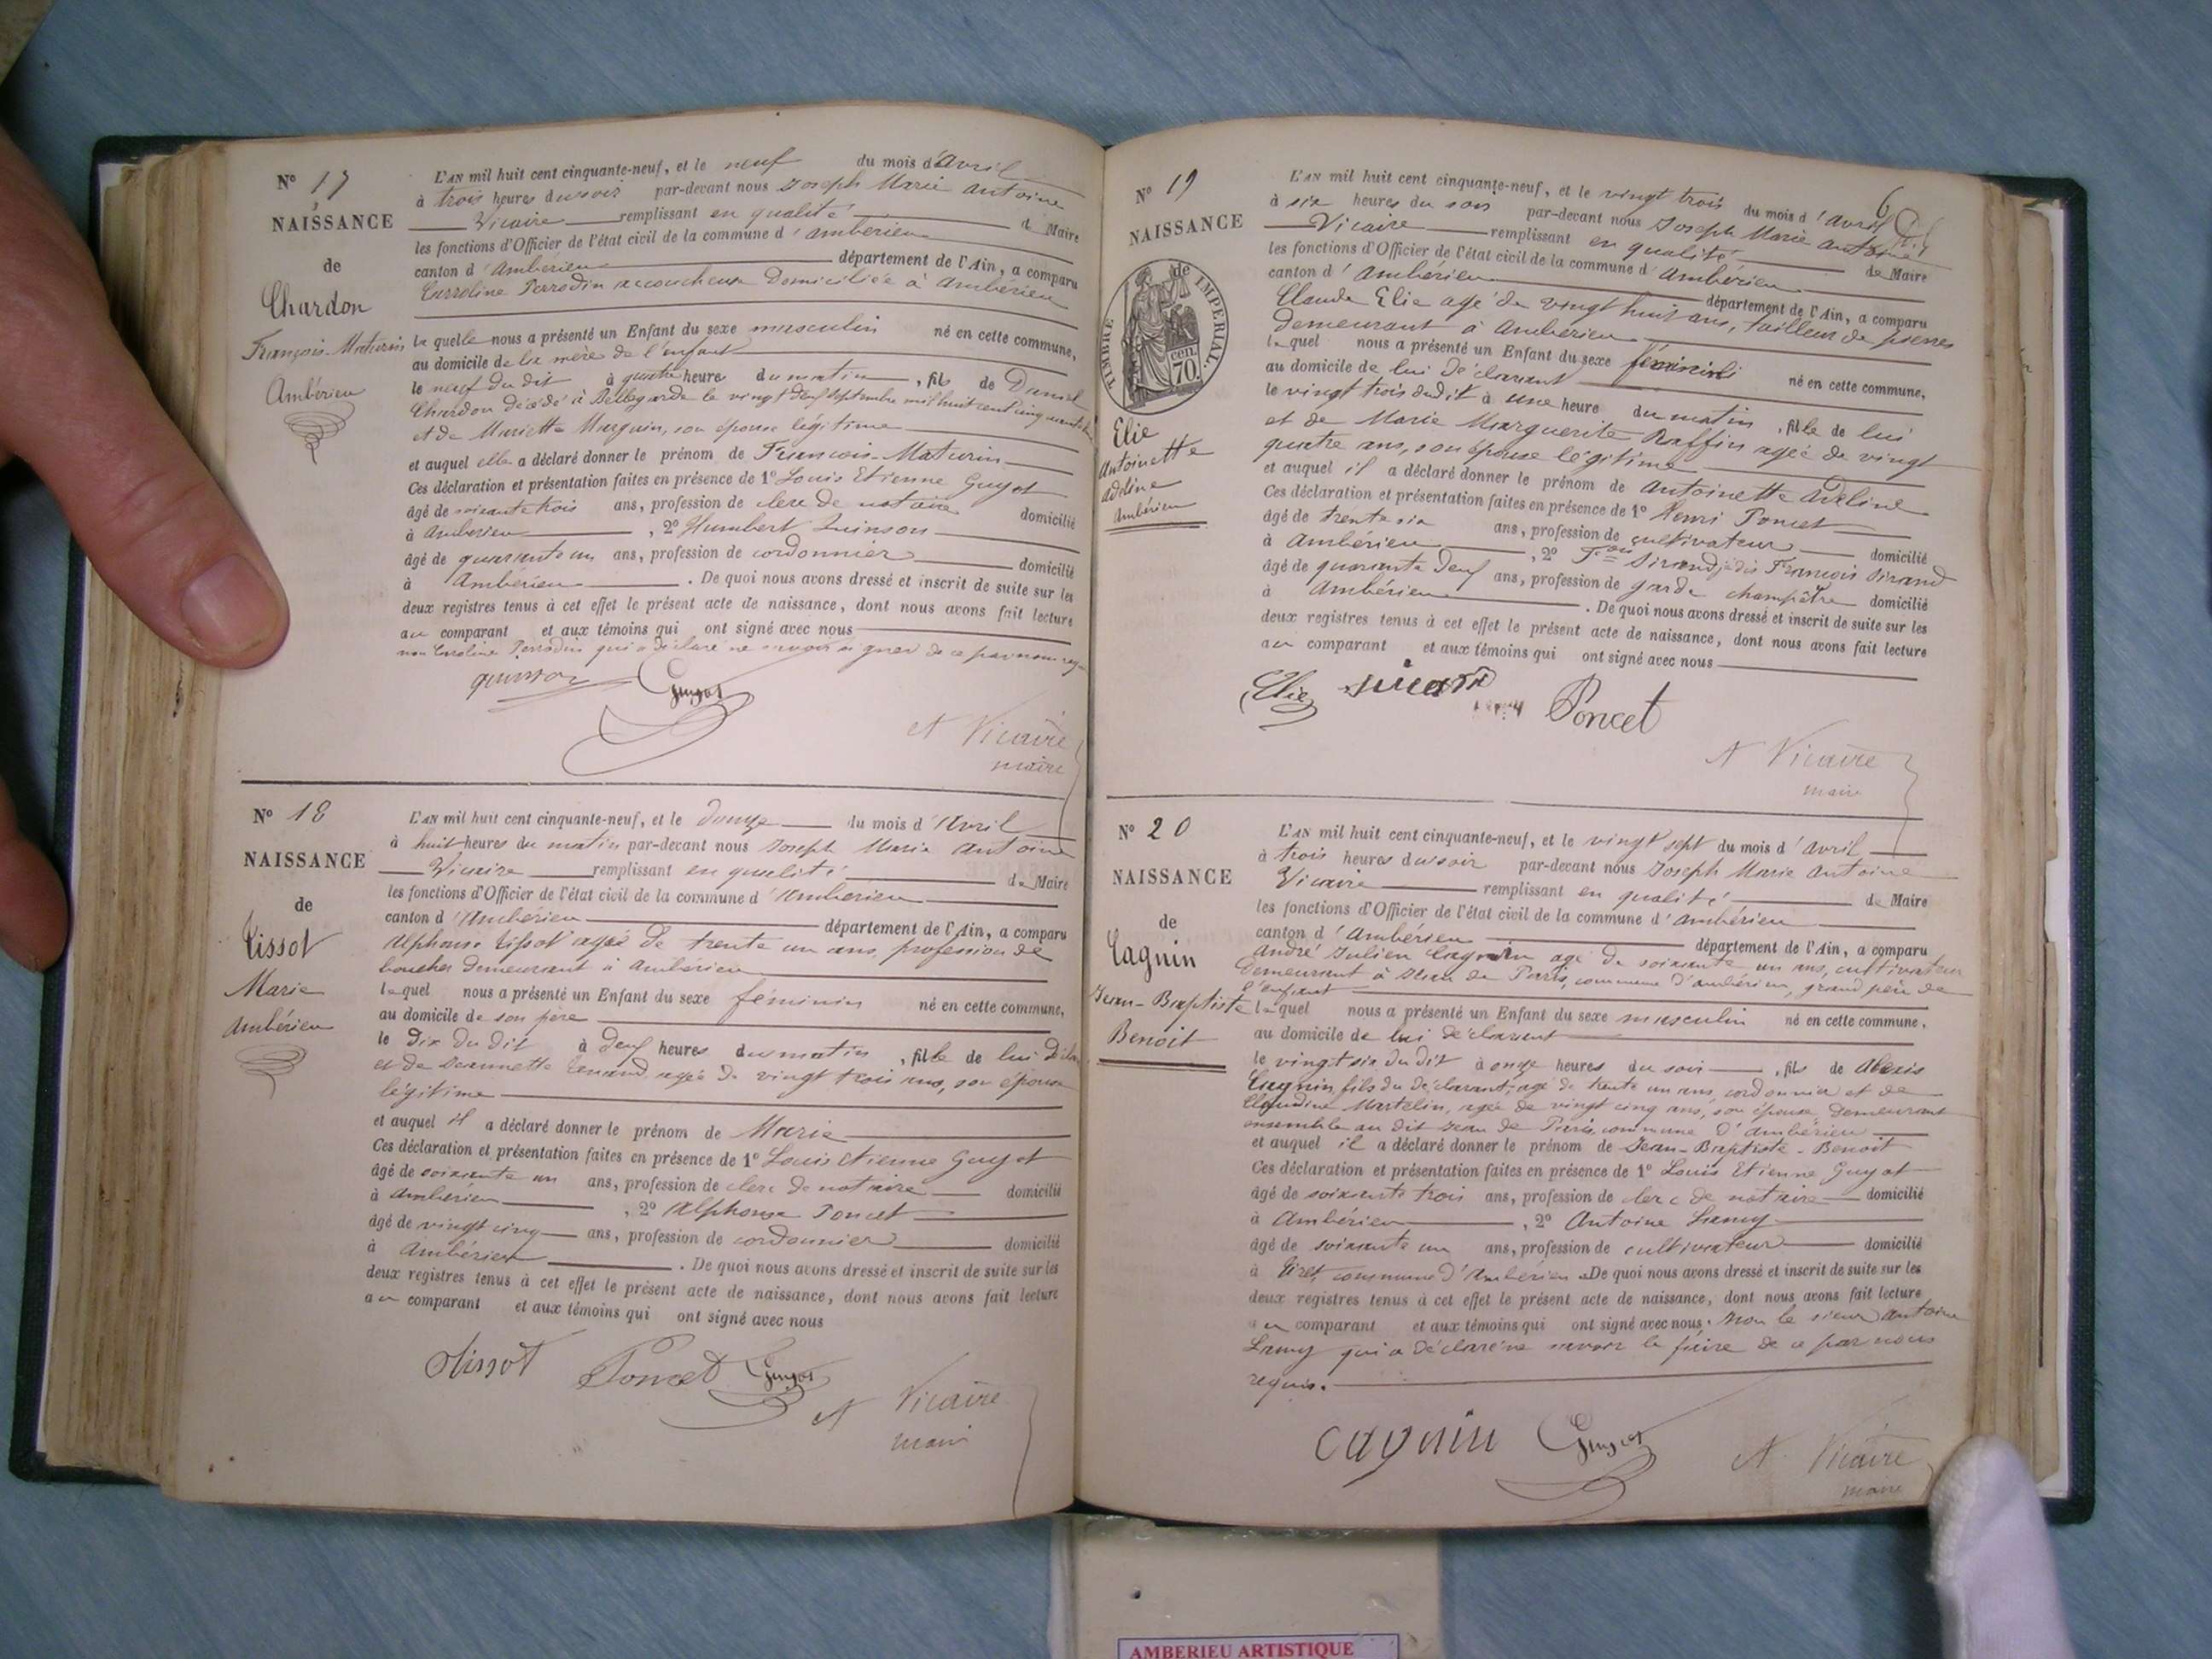 N° 17
NAISSANCE
de
Chardon
François-Maturin
Ambérieu
L'AN mil huit cent cinquante-neuf, et le neuf du mois d'Avril
à trois heures du soir par-devant nous Joseph Marie Antoine
Vicaire remplissant en qualité de Maire
les fonctions d'Officier de l'état civil de la commune d'Ambérieu
canton d'Ambérieu département de l'Ain, a comparu
Carroline Perrodin accoucheuse Domiciliée à Ambérieu
la quelle nous a présenté un Enfant du sexe masculin né en cette commune,
au domicile de la mère de l'enfant
le neuf du dit à quatre heure du matin, fils de
Chardon décédé à Bellegarde le vingt deux septembre mil huit cent cinquante
et de Mariette Murguin, son épouse légitime
et auquel elle a déclaré donner le prénom de François-Maturin
Ces déclaration et présentation faites en présence de 1° Louis Etienne Guyot
âgé de soixante trois ans, profession de clerc de notaire domicilié
à Ambérieu, 2° Humbert Quinson
âgé de quarante un ans, profession de cordonnier domicilié
à Ambérieu. De quoi nous avons dressé et inscrit de suite sur les
deux registres tenus à cet effet le présent acte de naissance, dont nous avons fait lecture
au comparant et aux témoins qui ont signé avec nous
non Caroline Perrodin qui a déclaré ne savoir signer de ce par nous
quinson Guyot
A Vicaire
maire
N° 18
NAISSANCE
de
Tissot
Marie
Ambérieu
L'AN mil huit cent cinquante-neuf, et le douze du mois d'Avril
à huit heures du matin par-devant nous Joseph Marie Antoine
Vicaire remplissant en qualité de Maire
les fonctions d'Officier de l'état civil de la commune d'Ambérieu
canton d'Ambérieu département de l'Ain, a comparu
Alphonse Tissot agée de trente un ans, profession de
boucher demeurant à Ambérieu
lequel nous a présenté un Enfant du sexe féminin né en cette commune,
au domicile de son père
le dix du dit à deux heures du matin, fille de lui
et de Jeannette agée de vingt trois ans, son épouse
légitime
et auquel il a déclaré donner le prénom de Marie
Ces déclaration et présentation faites en présence de 1° Louis Etienne Guyot
âgé de soixante un ans, profession de clerc de notaire domicilié
à Ambérieu, 2° Alphonse Poncet
âgé de vingt cinq ans, profession de cordonnier domicilié
à Ambérieu. De quoi nous avons dressé et inscrit de suite sur les
deux registres tenus à cet effet le présent acte de naissance, dont nous avons fait lecture
au comparant et aux témoins qui ont signé avec nous
Tissot Poncet Guyot
A Vicaire
maire
6
N° 19
NAISSANCE
de
TIMBRE IMPERIAL.
70 cen.
Elie
Antoinette
Adeline
Ambérieu
L'AN mil huit cent cinquante-neuf, et le vingt trois du mois d'avril
à six heures du soir par-devant nous Joseph Marie Antoine
Vicaire remplissant en qualité de Maire
les fonctions d'Officier de l'état civil de la commune d'Ambérieu
canton d'Ambérieu département de l'Ain, a comparu
Claude Elie agé de vingt huit ans, tailleur de pierres
demeurant à Ambérieu
lequel nous a présenté un Enfant du sexe féminin né en cette commune,
au domicile de lui déclarant
le vingt trois dudit à une heure du matin, fille de lui
et de Marie Marguerite Raffin agée de vingt
quatre ans, son épouse légitime
et auquel il a déclaré donner le prénom de Antoinette Adeline
Ces déclaration et présentation faites en présence de 1° Henri Poncet
âgé de trente six ans, profession de cultivateur domicilié
à Ambérieu, 2° Sirand François Sirand
âgé de quarante deux ans, profession de garde champêtre domicilié
à Ambérieu. De quoi nous avons dressé et inscrit de suite sur les
deux registres tenus à cet effet le présent acte de naissance, dont nous avons fait lecture
au comparant et aux témoins qui ont signé avec nous
Elie Poncet
A Vicaire
maire
N° 20
NAISSANCE
de
Cagnin
Jean-Baptiste
Benoit
L'AN mil huit cent cinquante-neuf, et le vingt sept du mois d'avril
à trois heures du soir par-devant nous Joseph Marie Antoine
Vicaire remplissant en qualité de Maire
les fonctions d'Officier de l'état civil de la commune d'Ambérieu
canton d'Ambérieu département de l'Ain, a comparu
André Julien Cagnin agé de soixante un ans, cultivateur
demeurant à Jean de Paris, commune d'ambérieu, grand père de
l'enfant
lequel nous a présenté un Enfant du sexe masculin né en cette commune,
au domicile de lui déclarant
le vingt six du dit à onze heures du soir, fils de Alexis
Cagnin fils du déclarant, agé de trente un ans, cordonnier et de
Claudine Martelin, agée de vingt cinq ans, son épouse, demeurant
ensemble au dit Jean de Paris, commune d'Ambérieu
et auquel il a déclaré donner le prénom de Jean-Baptiste-Benoit
Ces déclaration et présentation faites en présence de 1° Louis Etienne Guyot
âgé de soixante trois ans, profession de clerc de notaire domicilié
à Ambérieu, 2° Antoine Lamy
âgé de soixante un ans, profession de cultivateur domicilié
à Tiret, commune d'Ambérieu. De quoi nous avons dressé et inscrit de suite sur les
deux registres tenus à cet effet le présent acte de naissance, dont nous avons fait lecture
au comparant et aux témoins qui ont signé avec nous. Non le sieur antoine
Lamy qui a déclaré ne savoir le faire de ce par nous
requis.
cagnin Guyot
A Vicaire
maire
AMBERIEU ARTISTIQUE